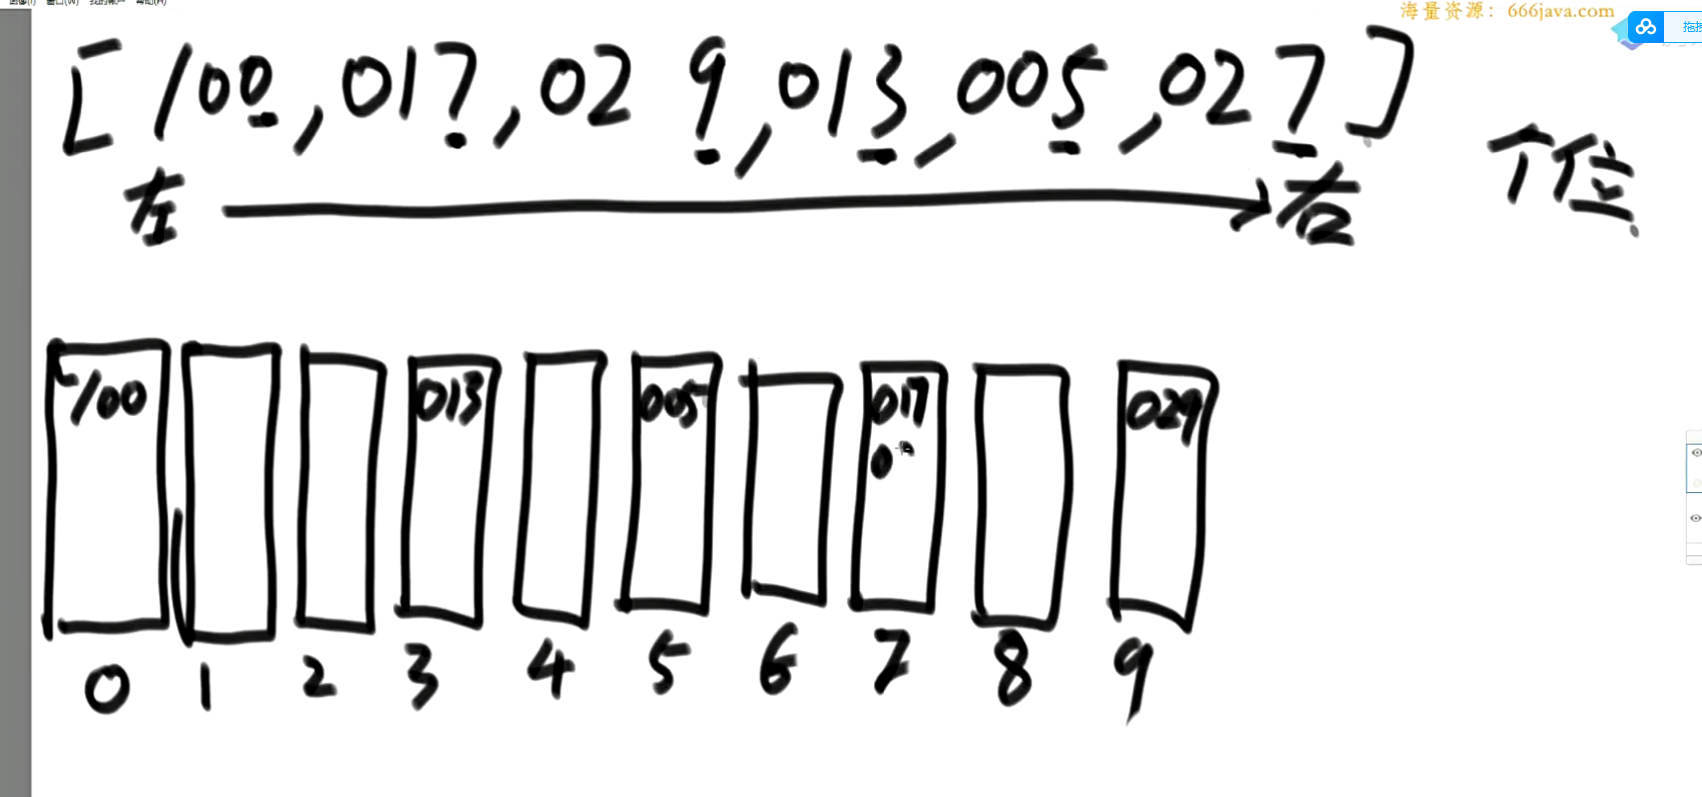 海量资源：666java.com
[100,017,029,013,005,027]
个位
左 右
100 013 005 017 029
0
0 1 2 3 4 5 6 7 8 9